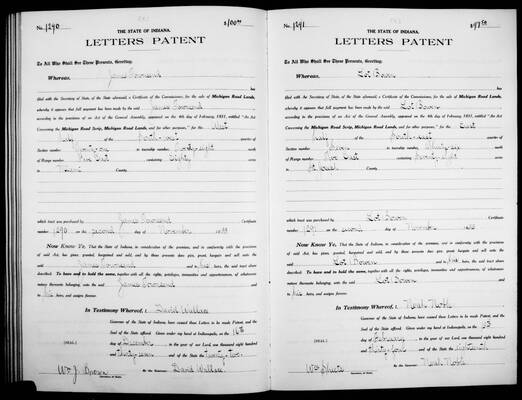 No. 1290
$100.00
THE STATE OF INDIANA.
LETTERS PATENT
To All Who Shall See These Presents, Greeting:
Whereas, James Townsend
has
filed with the Secretary of State, of the State aforesaid, a Certificate of the Commissioner, for the sale of Michigan Road Lands,
whereby it appears that full payment has been made by the said James Townsend
according to the provisions of an Act of the General Assembly, approved on the 4th day of February 1831, entitled "An Act
Concerning the Michigan Road Scrip, Michigan Road Lands, and for other purposes," for the West
half of the North west quarter of
Section number Twenty one in township number Thirty eight north
of Range number Five East containing Eighty acres
in County.
which tract was purchased by James Townsend Certificate
number 1290 on the second day of November
Now Know Ye, That the State of Indiana, in consideration of the premises, and in conformity with the provisions
of said Act, has given, granted, bargained and sold, and by these presents does give, grant, bargain and sell unto the
said James Townsend and his heirs, the tract above
described: To have and to hold the same, together with all the rights, privileges, immunities and appurtenances, of whatsoever
nature thereunto belonging, unto the said James Townsend
and to his heirs, and assigns forever.
In Testimony Whereof, I David Wallace
Governor of the State of Indiana, have caused these Letters to be made Patent, and the
Seal of the State affixed. Given under my hand at Indianapolis, on the 16th
(SEAL) day of December in the year of our Lord, one thousand eight hundred
and thirty seven and of the State the twenty two.
Wm. J. Brown By the Governor: David Wallace
Secretary of State.
No. 1291
THE STATE OF INDIANA.
LETTERS PATENT
To All Who Shall See These Presents, Greeting:
Whereas, Lot Bowen
has
filed with the Secretary of State, of the State aforesaid, a Certificate of the Commissioner, for the sale of Michigan Road Lands,
whereby it appears that full payment has been made by the said Lot Bowen
according to the provisions of an Act of the General Assembly, approved on the 4th day of February 1831, entitled "An Act
Concerning the Michigan Road Scrip, Michigan Road Lands, and for other purposes," for the East
half of the quarter of
Section number in township number Thirty six north
of Range number Five East containing acres
in County.
which tract was purchased by Lot Bowen Certificate
number 1291 on the second day of November
Now Know Ye, That the State of Indiana, in consideration of the premises, and in conformity with the provisions
of said Act, has given, granted, bargained and sold, and by these presents does give, grant, bargain and sell unto the
said Lot Bowen and his heirs, the tract above
described: To have and to hold the same, together with all the rights, privileges, immunities and appurtenances, of whatsoever
nature thereunto belonging, unto the said Lot Bowen
and to his heirs, and assigns forever.
In Testimony Whereof, I Noah Noble
Governor of the State of Indiana, have caused these Letters to be made Patent, and the
Seal of the State affixed. Given under my hand at Indianapolis, on the 23
(SEAL) day of February in the year of our Lord, one thousand eight hundred
and and of the State the
Wm Sheets By the Governor: Noah Noble
Secretary of State.